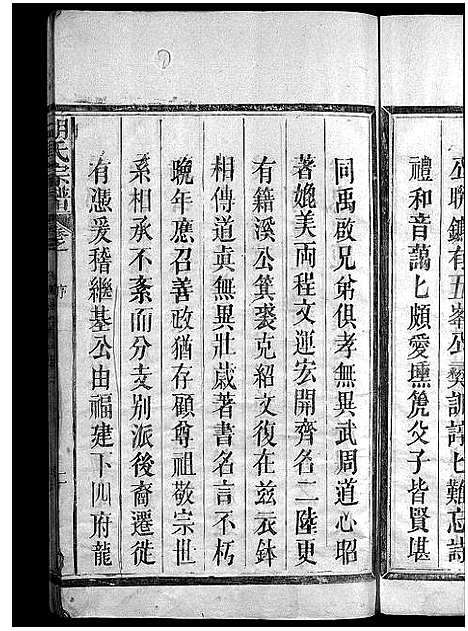 丞聨鑣有五峯公獎訓諄匕難忘誌
禮和音藹匕頗愛壎箎父子皆賢堪
同禹啟兄弟俱孝無異武周道心昭
著媲美両程文運宏開齊名二陸更
有籍溪公箕裘克紹文復在兹衣鉢
相傳道真無異壯歲著書名言不朽
晩年應召善政猶存顧尊祖敬宗世
系相承不紊而分支別派後裔遷徙
有憑爰稽継基公由福建下四府龍
胡氏宗譜
序